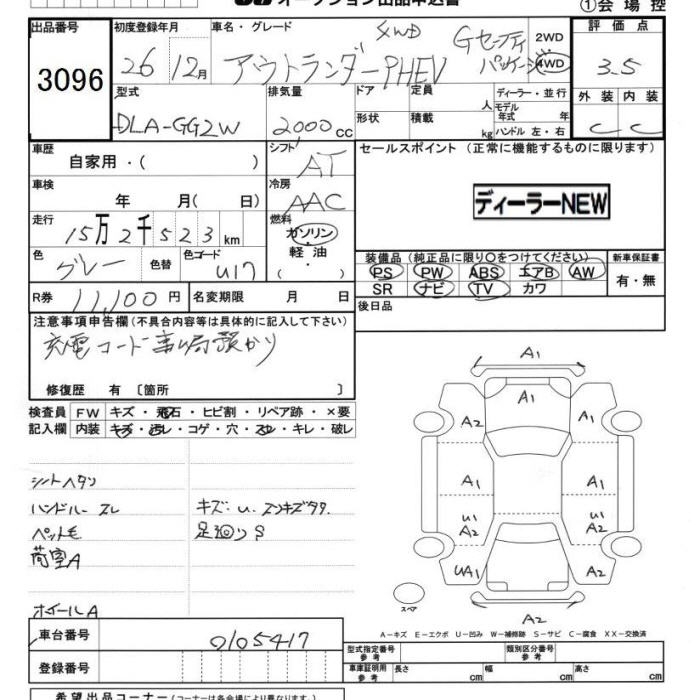 オークション出品申込書
①会場控
出品番号 初度登録年月 車名・グレード 4WD Gセーフティ 2WD 評価点
3096 26 12月 アウトランダーPHEV パッケージ 4WD 3.5
型式 排気量 ドア 定員 人 ディーラー・並行 外装 内装
DLA-GG2W 2000cc 形状 積載 kg モデル年式 年 ハンドル 左・右 C C
車歴 シフト セールスポイント (正常に機能するものに限ります)
自家用・( ) AT
車検 冷房
年 月( 日) AAC ディーラーNEW
走行 燃料
15万2千523km ガソリン
色 色替 色コード 軽・油 装備品 (純正品に限り○をつけてください) 新車保証書
グレー U17 PS PW ABS エアB AW 有・無
R券 11,100円 名変期限 月 日 SR ナビ TV カワ
注意事項申告欄(不具合内容等は具体的に記入して下さい) 後日品
充電コード事ム局預かり
修復歴 有 〔箇所 〕
検査員 FW キズ・飛石・ヒビ割・リペア跡・×要
記入欄 内装 キズ・汚レ・コゲ・穴・スレ・キレ・破レ
A1
A1
A2 A2
A1 A1
U1 A2 U1 A2
UA1 A2
A2
スペア
シートヘタリ
ハンドルースレ キズ・U.
ペット毛 足廻りS
荷室A
ホイールA
A−キズ E−エクボ U−凹み W−補修跡 S−サビ C−腐食 XX−交換済
車台番号 0105417 型式指定番号 参考 類別区分番号 参考
登録番号 車庫証明用 参考 長さ cm 幅 cm 高さ cm
希望出品コーナー(コーナー名は各会場により異なります)